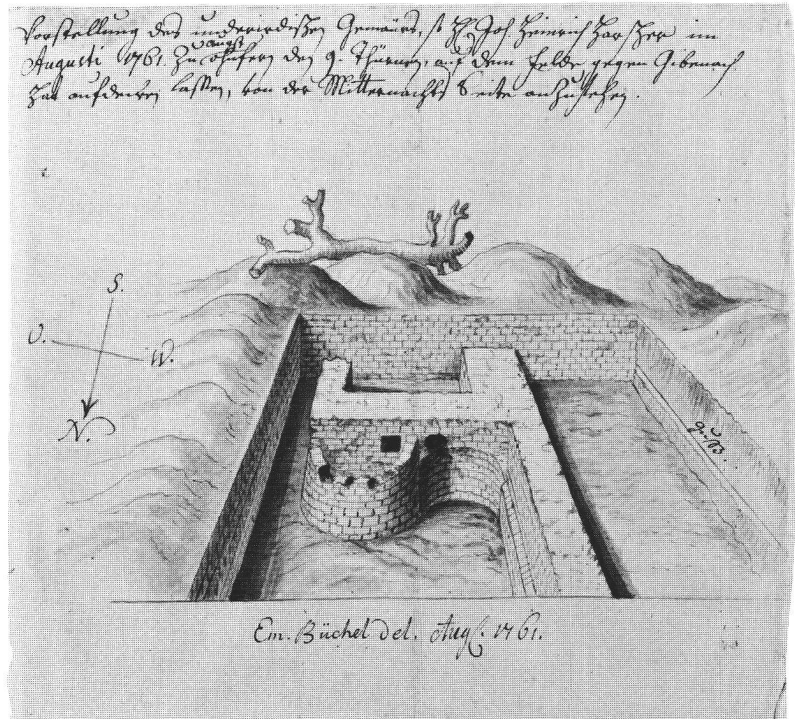 Vorstellung des underirdischen Gemäurs, so H. Joh. Heinrich Harscher im
Augsti 1761. Zu Augst ohnfern den 9. Thürnen, auf dem Felde gegen Gibenach
hat aufdecken lassen, von der Mitternacht Seite anzusehen.
S.
O.
W.
N.
Em. Büchel Del. Augs. 1761.